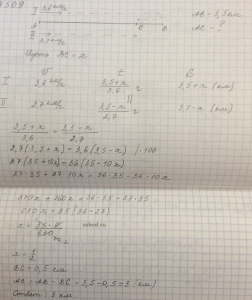 4509
I 3,6 км/ч
AB - 3,5 км
A C B
AC - ?
II 2,7 км/ч
Пусть BC = x
V t S
I 3,6 км/ч (3,5+x)/3,6 ч 3,5+x (км)
II 2,7 км/ч (3,5-x)/2,7 ч 3,5-x (км)
(3,5+x)/3,6 = (3,5-x)/2,7
2,7(3,5+x) = 3,6(3,5-x) |·100
27(35+10x) = 36(35-10x)
27·35+27·10x = 36·35-36·10x
270x+360x = 36·35-27·35
630x = 35(36-27)
x = 1/2
BC = 0,5 км
AC = AB - BC = 3,5-0,5 = 3 (км)
Ответ: 3 км